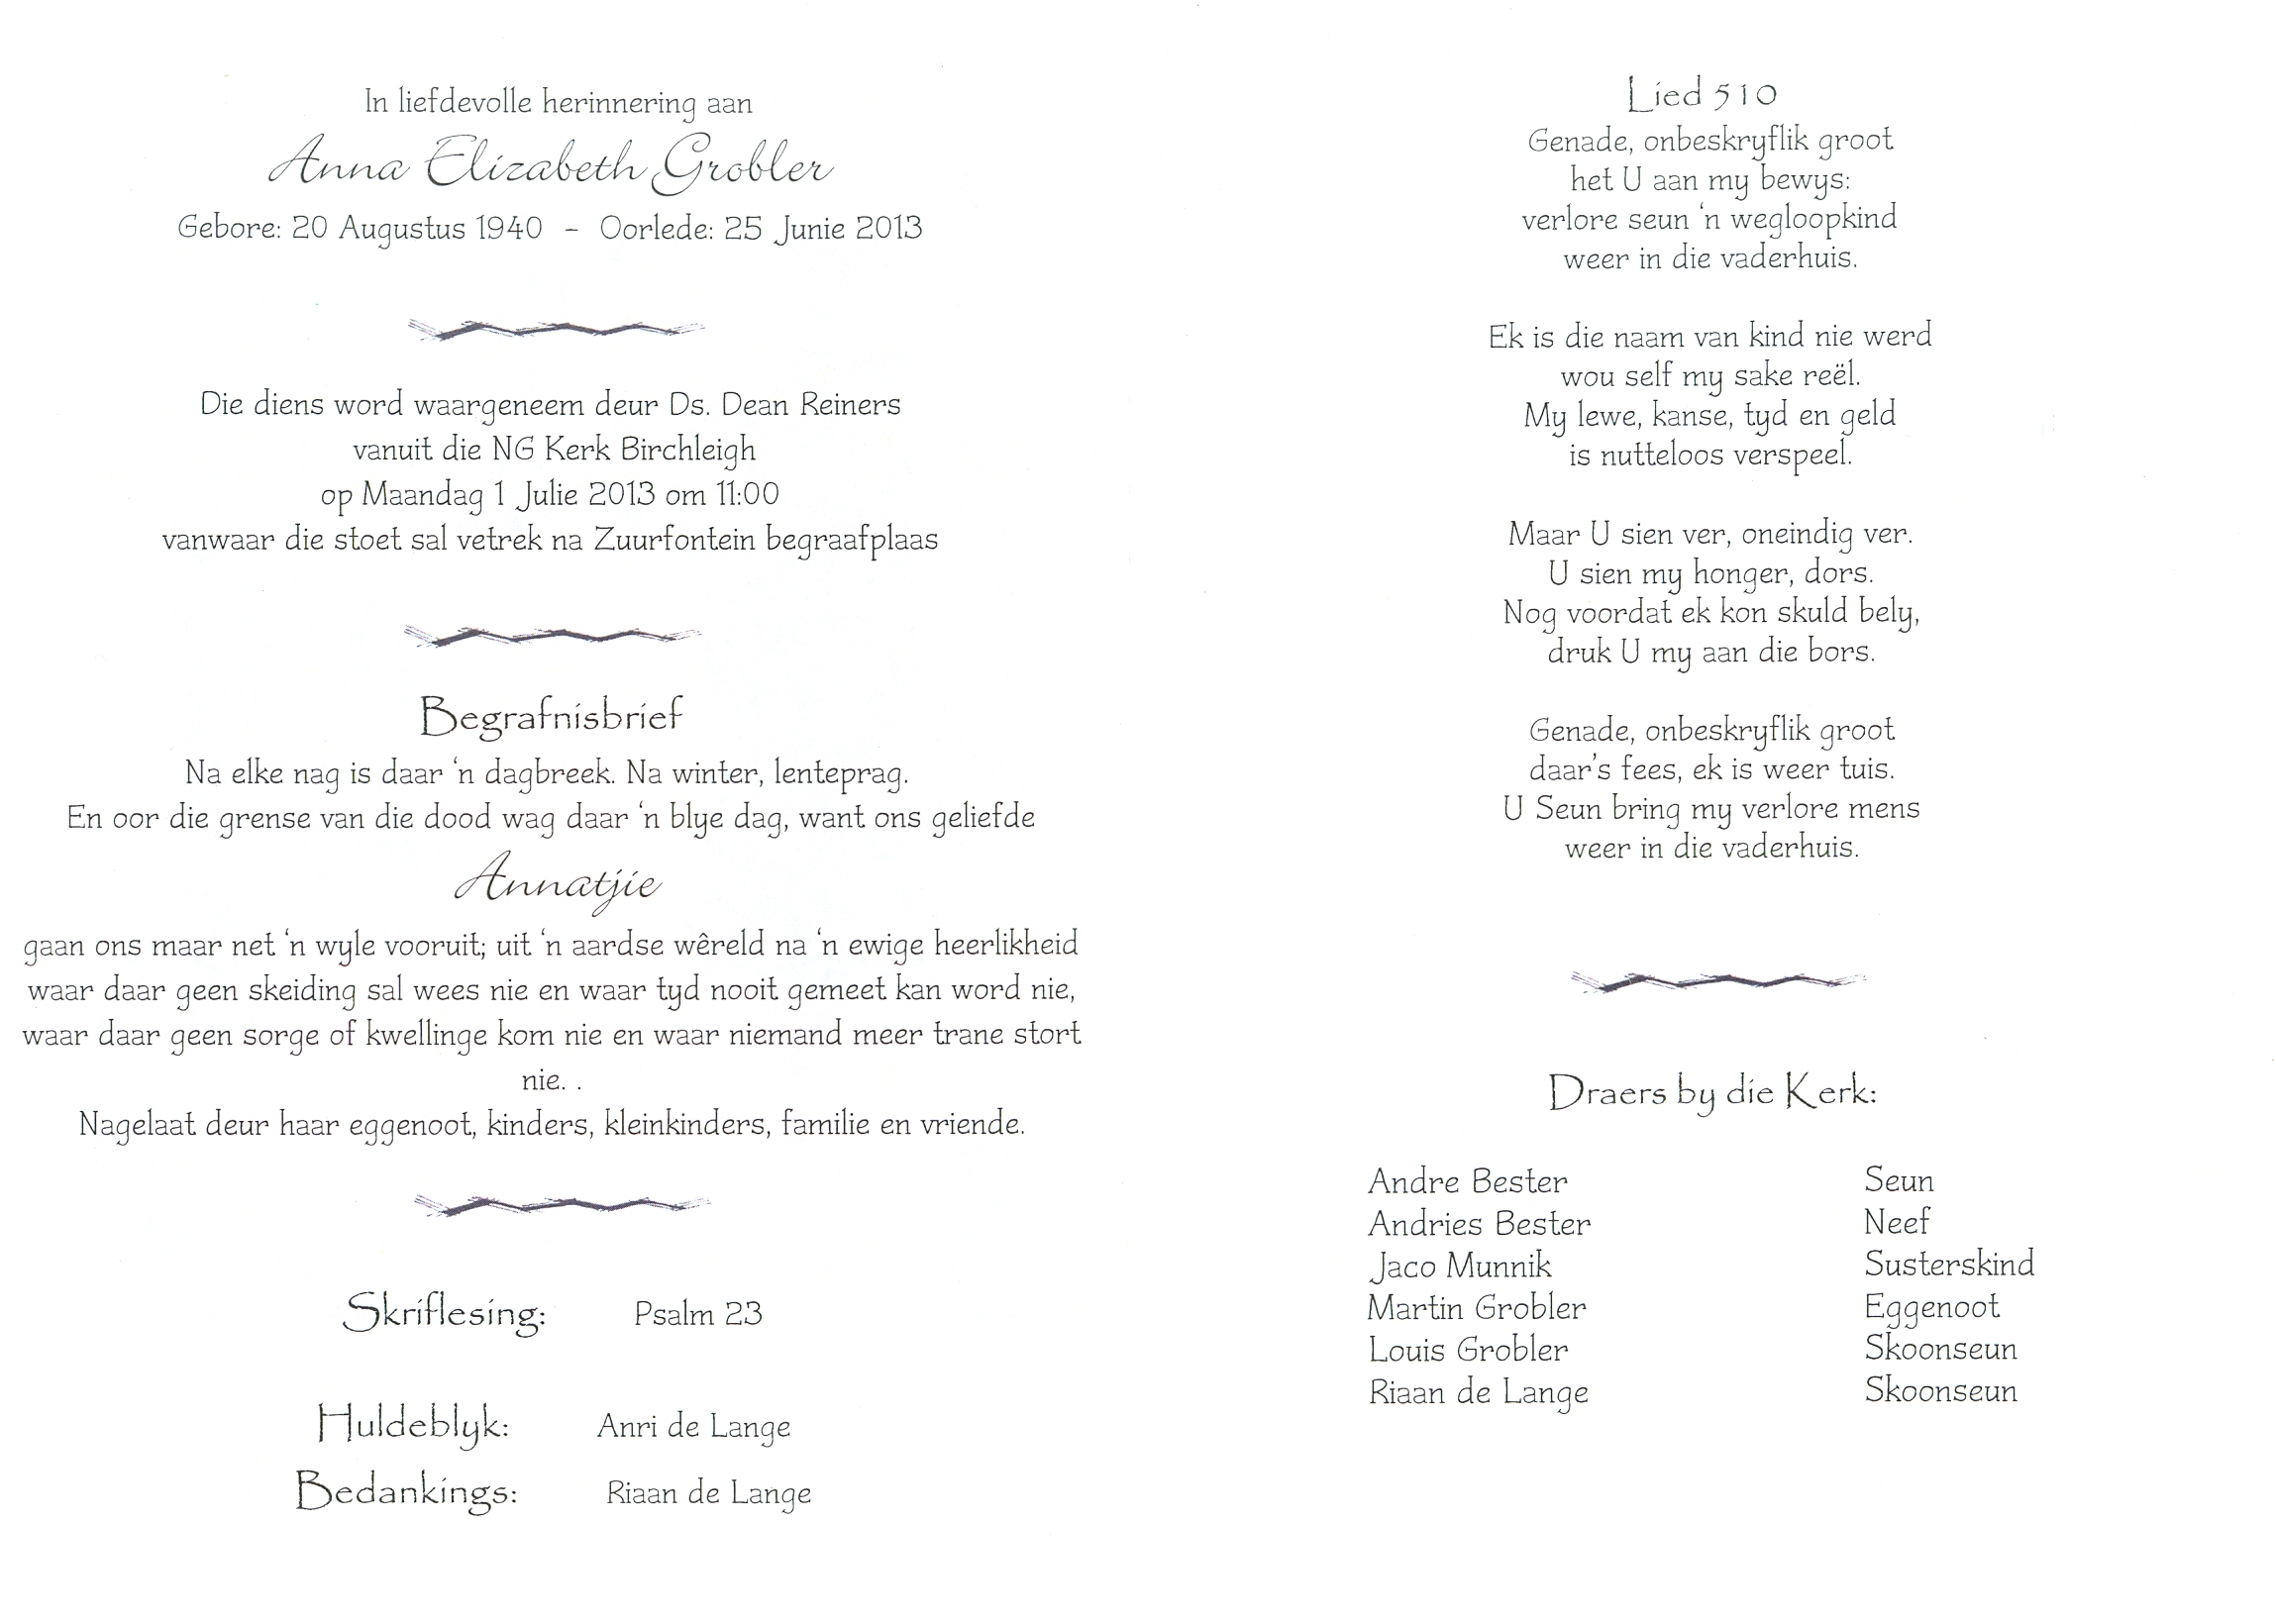 In liefdevolle herinnering aan
Anna Elizabeth Grobler
Gebore: 20 Augustus 1940 – Oorlede: 25 Junie 2013
Die diens word waargeneem deur Ds. Dean Reiners
vanuit die NG Kerk Birchleigh
op Maandag 1 Julie 2013 om 11:00
vanwaar die stoet sal vetrek na Zuurfontein begraafplaas
Begrafnisbrief
Na elke nag is daar ‘n dagbreek. Na winter, lenteprag.
En oor die grense van die dood wag daar ‘n blye dag, want ons geliefde
Annatjie
gaan ons maar net ‘n wyle vooruit; uit ‘n aardse wêreld na ‘n ewige heerlikheid
waar daar geen skeiding sal wees nie en waar tyd nooit gemeet kan word nie,
waar daar geen sorge of kwellinge kom nie en waar niemand meer trane stort
nie. .
Nagelaat deur haar eggenoot, kinders, kleinkinders, familie en vriende.
Skriflesing: Psalm 23
Huldeblyk: Anri de Lange
Bedankings: Riaan de Lange
Lied 510
Genade, onbeskryflik groot
het U aan my bewys:
verlore seun ‘n wegloopkind
weer in die vaderhuis.
Ek is die naam van kind nie werd
wou self my sake reël.
My lewe, kanse, tyd en geld
is nutteloos verspeel.
Maar U sien ver, oneindig ver.
U sien my honger, dors.
Nog voordat ek kon skuld bely,
druk U my aan die bors.
Genade, onbeskryflik groot
daar’s fees, ek is weer tuis.
U Seun bring my verlore mens
weer in die vaderhuis.
Draers by die Kerk:
Andre Bester Seun
Andries Bester Neef
Jaco Munnik Susterskind
Martin Grobler Eggenoot
Louis Grobler Skoonseun
Riaan de Lange Skoonseun